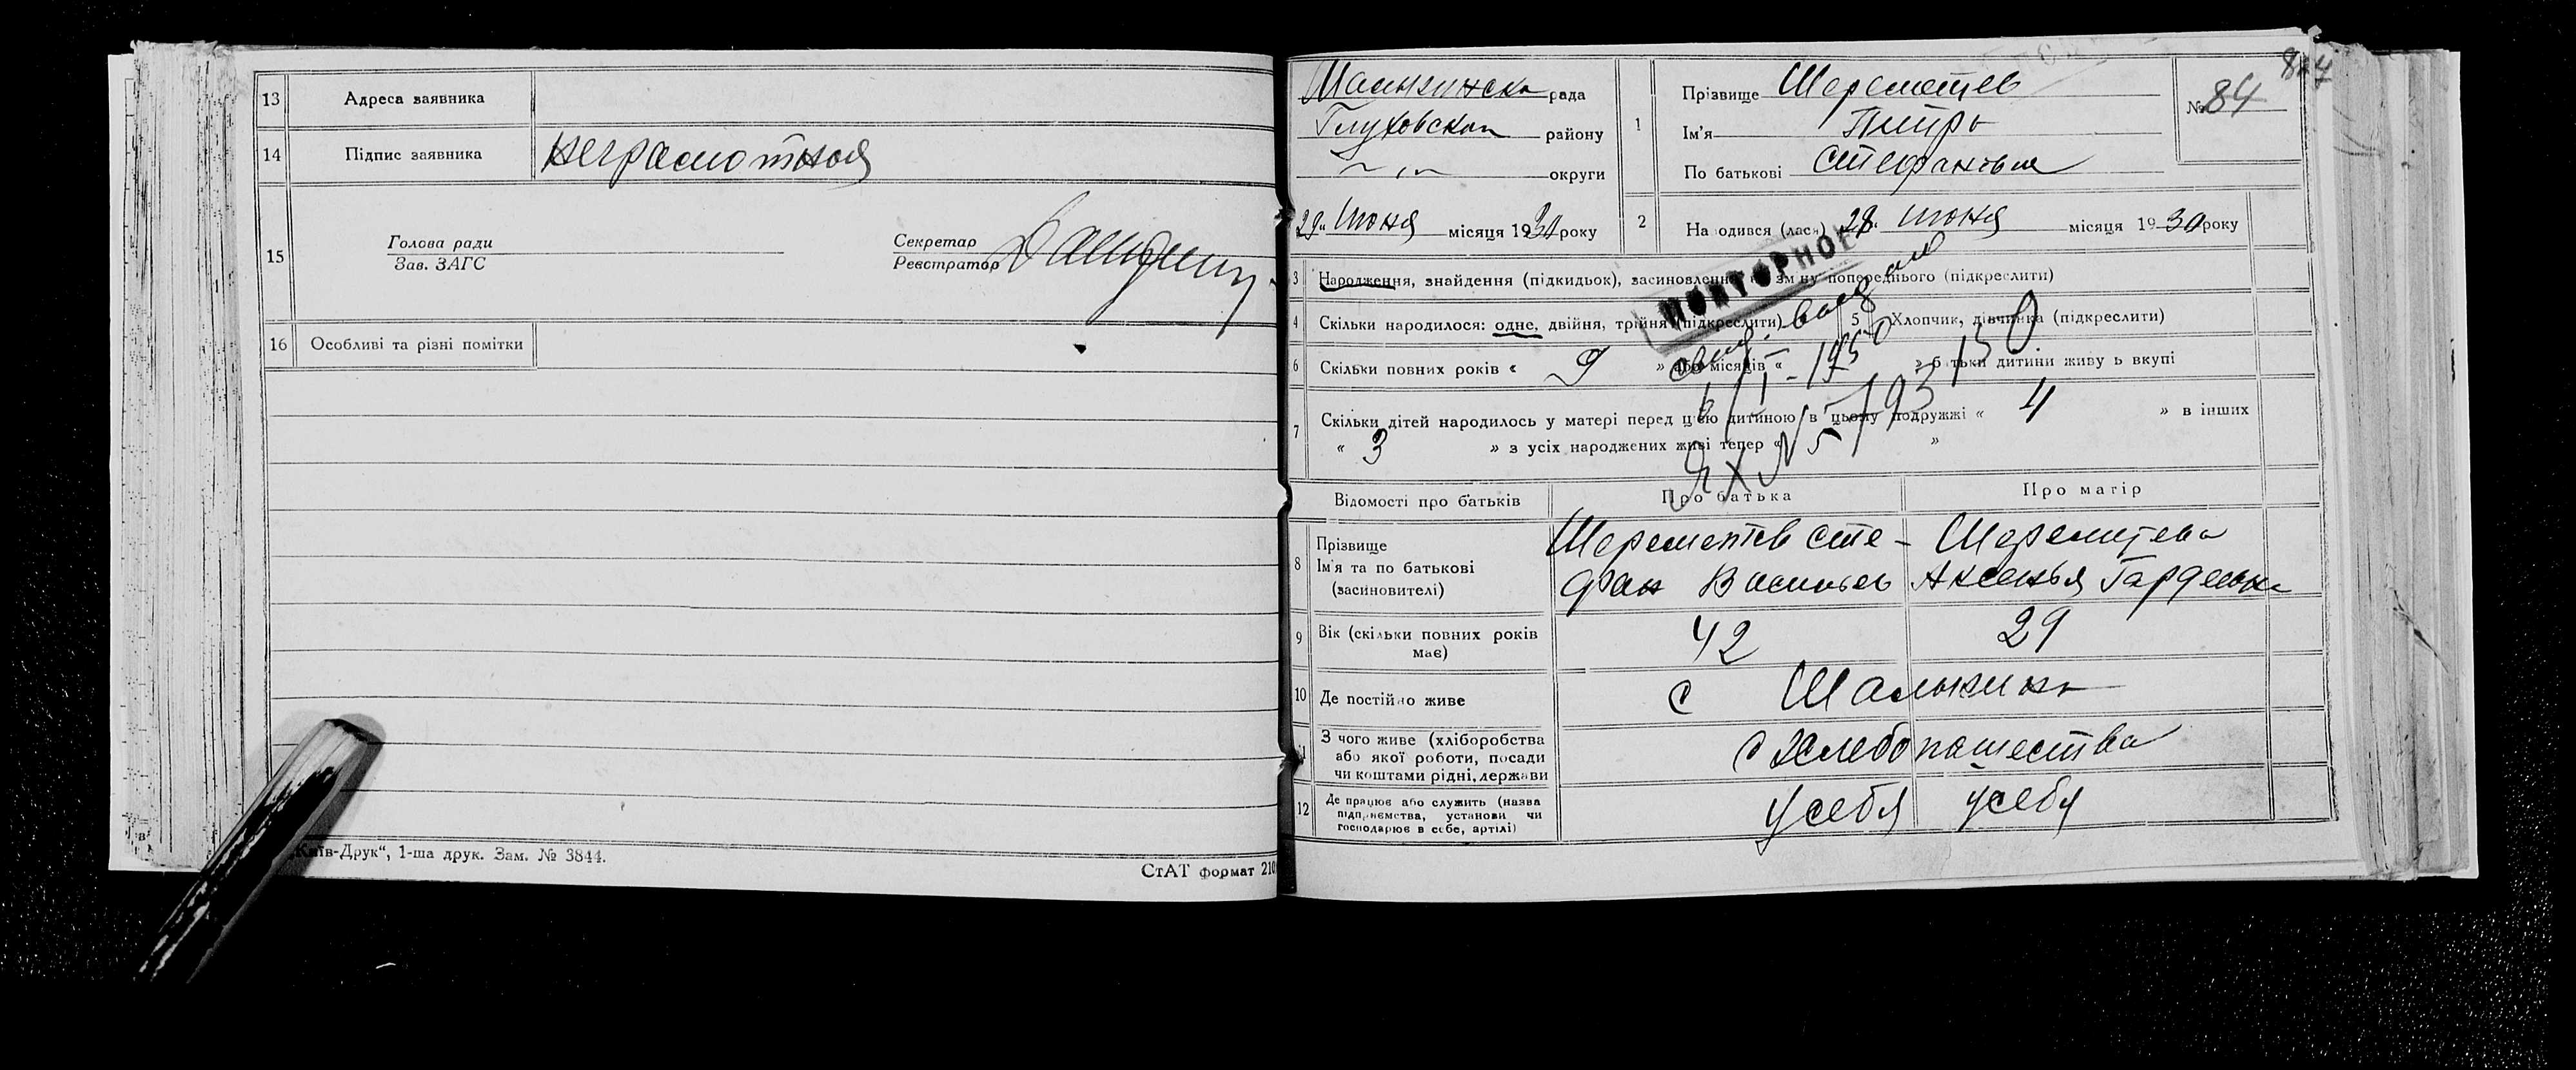 13 Адреса заявника
14 Підпис заявника неграмотная
15 Голова ради
Зав. ЗАГС
Секретар
Реєстратор
16 Особливі та різні помітки
Київ-Друк“, 1-ша друк. Зам. № 3844.
СтАТ формат 210
рада
Глуховском району
округи
29 июня місяця 1930 року
1 Прізвище Шереметев
Ім'я Питро
По батькові
№ 84
2 Народився (лась) 28 июня місяця 1930 року
ПОВТОРНОЕ
3 Народження, знайдення (підкидьок), засиновлення, на зміну попереднього (підкреслити)
4 Скільки народилося: одне, двійня, трійня (підкреслити)
5 Хлопчик, дівчинка (підкреслити)
6 Скільки повних років « 9 » або місяців « » батьки дитини живуть вкупі
7 Скільки дітей народилось у матері перед цією дитиною в цьому подружжі « 4 » в інших
« 3 » з усіх народжених живі тепер « »
Відомості про батьків Про батька Про матір
8 Прізвище
Ім'я та по батькові
(засиновителі)
Шереметев Сте-
фан Васильев
Шереметева
Аксенья
9 Вік (скільки повних років
має)
42 29
10 Де постійно живе с Шалыкина
11 З чого живе (хліборобства
або якої роботи, посади
чи коштами рідні, держави
с хлебопашества
12 Де працює або служить (назва
підприємства, установи чи
господарює в себе, артілі)
у себя у себя